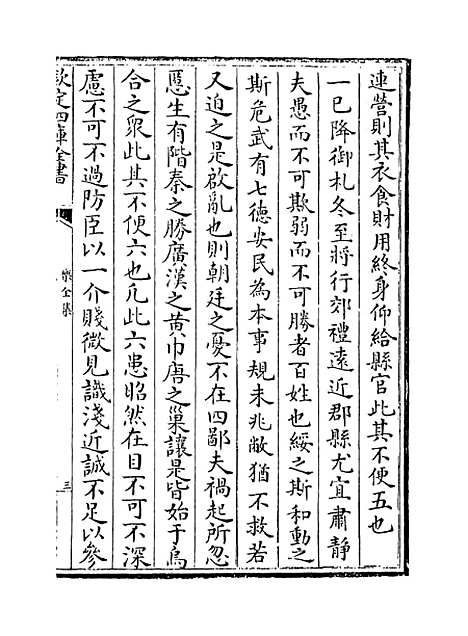 連營則其衣食財用終身仰給縣官此其不便五也
一已降御札冬至將行郊禮遠近郡縣尤宜肅靜
夫愚而不可欺弱而不可勝者百姓也綏之斯和動之
斯危武有七德安民為本事規未兆敝猶不救若
又迫之是啟亂也則朝廷之憂不在四鄙夫禍起所忽
慝生有階秦之勝廣漢之黃巾唐之巢讓是皆始于烏
合之衆此其不便六也凡此六患昭然在目不可不深
慮不可不過防臣以一介賤微見識淺近誠不足以參
欽定四庫全書
樂全集
三